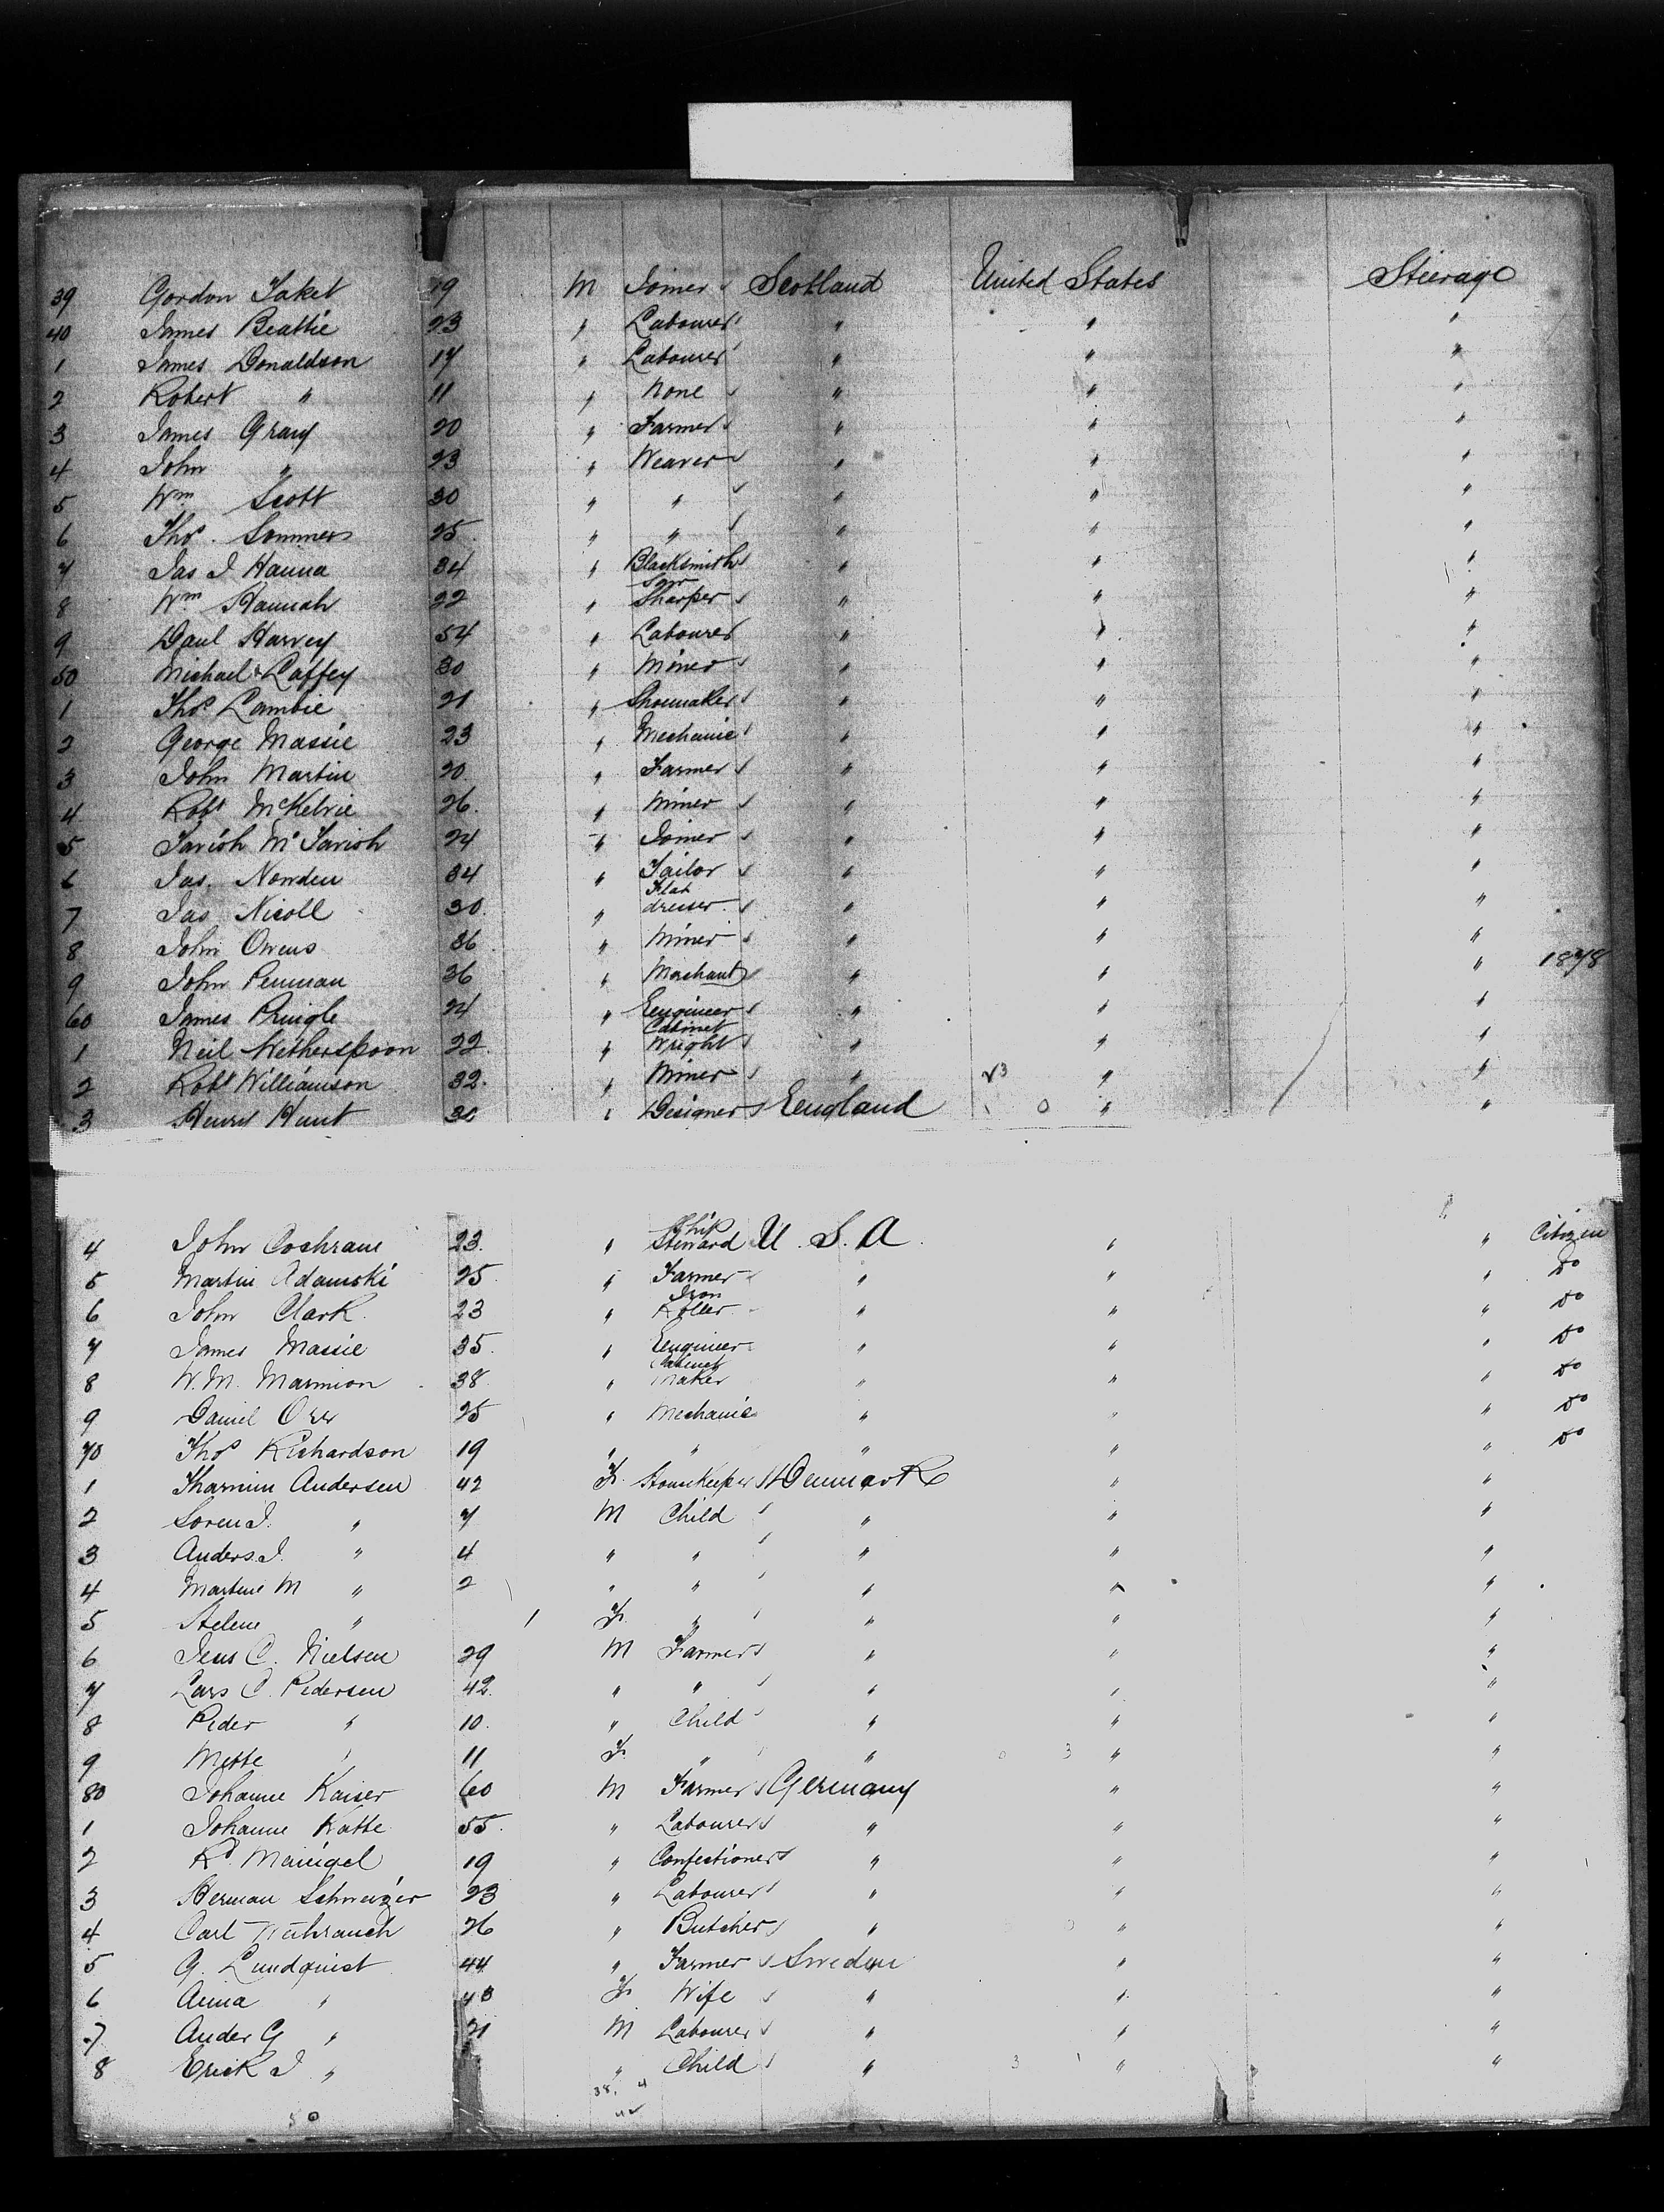 39 Gordon Taket 19 M Joiner Scotland United States Steerage
40 James Beattie 23 " Labourer " " "
1 James Donaldson 17 " Labourer " " "
2 Robert " 11 " None " " "
3 James Gray 20 " Farmer " " "
4 John " 23 " Weaver " " "
5 Wm Scott 30 " " " " "
6 Thos. Sommers 25 " " " " "
7 Jas J Hanna 34 " Blacksmith " " "
8 Wm Hannah 22 " Saw Sharper " " "
9 Paul Harvey 54 " Labourer " " "
50 Michael Caffey 30 " Miner " " "
1 Thos Lambie 21 " Shoemaker " " "
2 George Massie 23 " Mechanic " " "
3 John Martin 20 " Farmer " " "
4 Robt McKelvie 26 " Miner " " "
5 Tavish McTavish 24 " Joiner " " "
6 Jas. Nowden 34 " Tailor " " "
7 Jas Nicoll 30 " dresser " " "
8 John Owens 36 " Miner " " "
9 John Penman 36 " Merchant " " " 1878
60 James Pringle 24 " Engineer " " "
1 Neil Wetherspoon 22 " Cabinet Wright " " "
2 Robt Williamson 32 " Miner " " "
3 Henry Hunt 30 " Designer England " "
4 John Cochrane 23 " Ship Steward U.S.A. " " Citizen
5 Martin Adamski 25 " Farmer " " " Do
6 John Clark 23 " Iron Roller " " " Do
7 James Massie 35 " Engineer " " " Do
8 W.M. Marmion 38 " Cabinet Maker " " " Do
9 Daniel Orr 25 " Mechanic " " " Do
70 Thos Richardson 19 " " " " " Do
1 Andersen 42 F. Housekeeper Denmark " "
2 Soren J. " 7 M Child " " "
3 Anders J. " 4 " " " " "
4 Martine M " 2 " " " " "
5 Helene " 1 F. " " " "
6 Jens C. Nielsen 29 M Farmer " " "
7 Lars C. Pedersen 42 " " " " "
8 Peder " 10 " Child " " "
9 Mette " 11 F. " " " "
80 Johanne Kaiser 60 M Farmer Germany " "
1 Johanne Katte 55 " Labourer " " "
2 Rd. 19 " Confectioner " " "
3 Herman Schweizer 23 " Labourer " " "
4 Carl Weihrauch 26 " Butcher " " "
5 G. Lundquist 44 " Farmer Sweden " "
6 Anna " 43 F. Wife " " "
7 Ander G " 21 M Labourer " " "
8 Erick J " " Child " " "